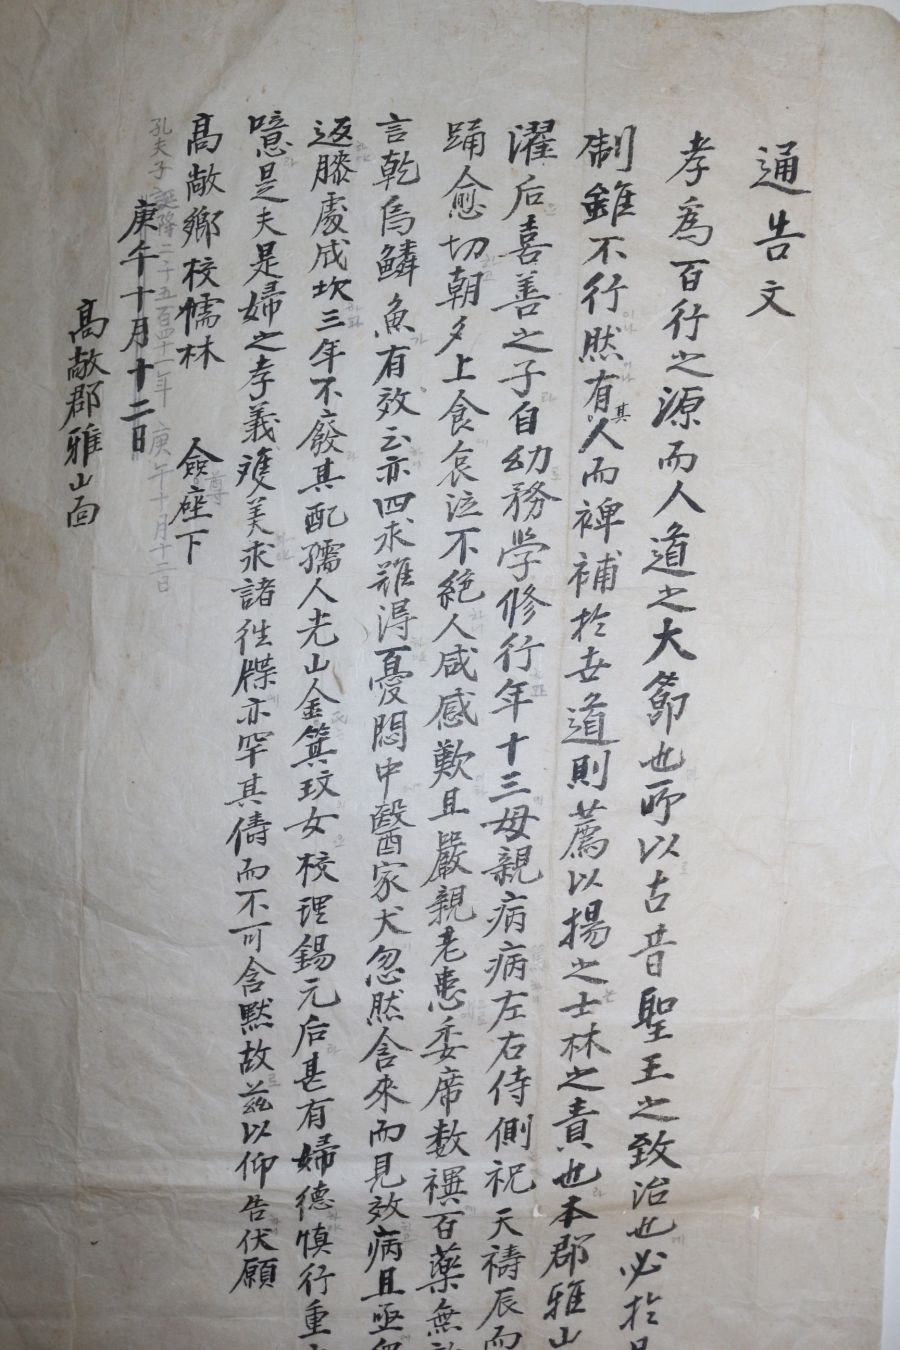 通告文
孝爲百行之源而人道之大節也所以古昔聖王之致治也必於
制雖不行然有其人而裨補於世道則薦以揚之士林之責也本郡雅山
濯后喜善之子自幼務學修行年十三母親病病左右侍側祝天禱辰而
踊愈切朝夕上食哀泣不絶人咸感歎且嚴親老患委席数禩百藥無
言乾烏鱗魚有效云亦四求難得憂悶中醫家犬忽然含來而見效病且亟
返膝處成坎三年不廢其配孺人光山金箕玟女校理錫元后甚有婦德愼行重
噫是夫是婦之孝義雙美求諸往牒亦罕其儔而不可含默故玆以仰告伏願
高敞鄕校儒林 僉尊座下
孔夫子誕降二千五百四十一年 庚午十月十二日
庚午十月十二日
高敞郡雅山面